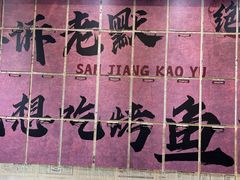 诉老默 绝
SAN JIANG KAO YU
想吃烤鱼